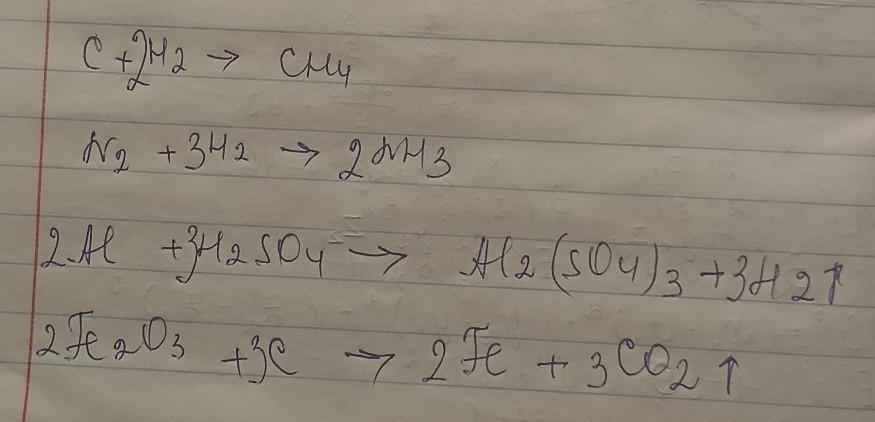 C + 2H2 → CH4
N2 + 3H2 → 2NH3
2Al + 3H2SO4 → Al2(SO4)3 + 3H2↑
2Fe2O3 + 3C → 2Fe + 3CO2↑